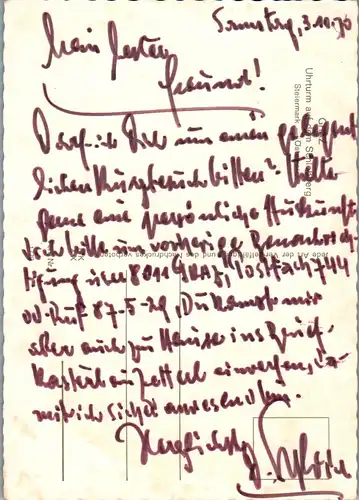 Samstag, 3.10.70
Mein lieber
Freund!
Darf ich Dich um einen gelegent-
lichen Kurzbesuch bitten? Hätte
gerne eine persönliche Auskunft
Ich bitte um vorherige Benachrich-
tigung über 8011 Graz, Postfach 744
od. Ruf 87-5-29, Du kannst mir
aber auch zu Hause ins Brief-
kasterl an Zettel einwerfen,
mit sicher anwesend
Herzlichst
Uhrturm auf dem Schloßberg
Steiermark
Jede Art der Vervielfältigung und Nachdruckes verboten